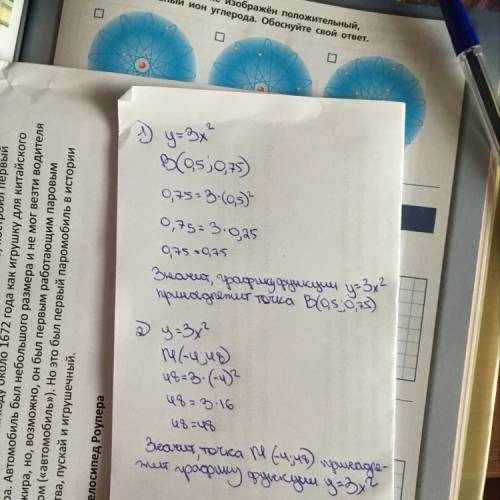 изображён положительный,
ный ион углерода. Обоснуйте свой ответ.
1) y=3x²
B(0,5; 0,75)
0,75=3·(0,5)²
0,75=3·0,25
0,75=0,75
Значит, графику функции y=3x²
принадлежит точка B(0,5; 0,75)
2) y=3x²
M(-4; 48)
48=3·(-4)²
48=3·16
48=48
Значит, точка M(-4; 48) принадле-
жит графику функции y=3x²
построил первый
ду около 1672 года как игрушку для китайского
ра. Автомобиль был небольшого размера и не мог везти водителя
жира, но, возможно, он был первым работающим паровым
ом («автомобиль»). Но это был первый паромобиль в истории
тва, пускай и игрушечный.
елосипед Роупера